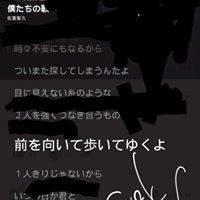 僕たちの
佐香智久
時々不安にもなるから
ついまた探してしまうんだよ
目に見えない糸のような
2人を強くつなき合うもの
前を向いて歩いてゆくよ
1人きりじゃないから
いつの日か君と